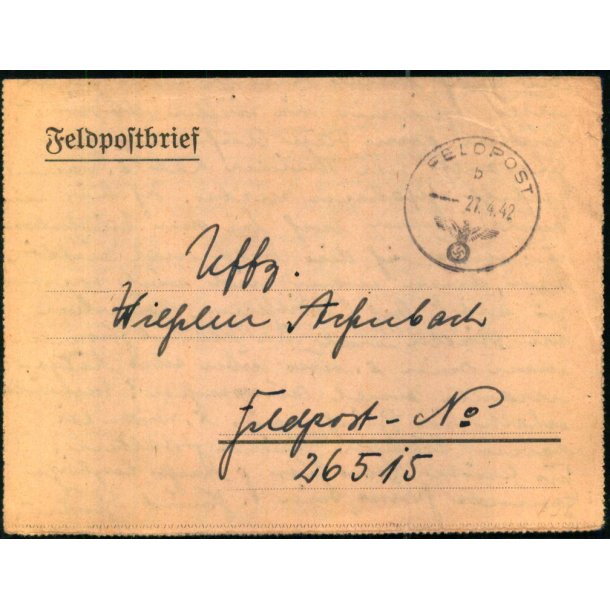 Feldpostbrief
FELDPOST
b
27.4.42
Uffz.
Wilhelm Aschenbach
Feldpost - No
26515